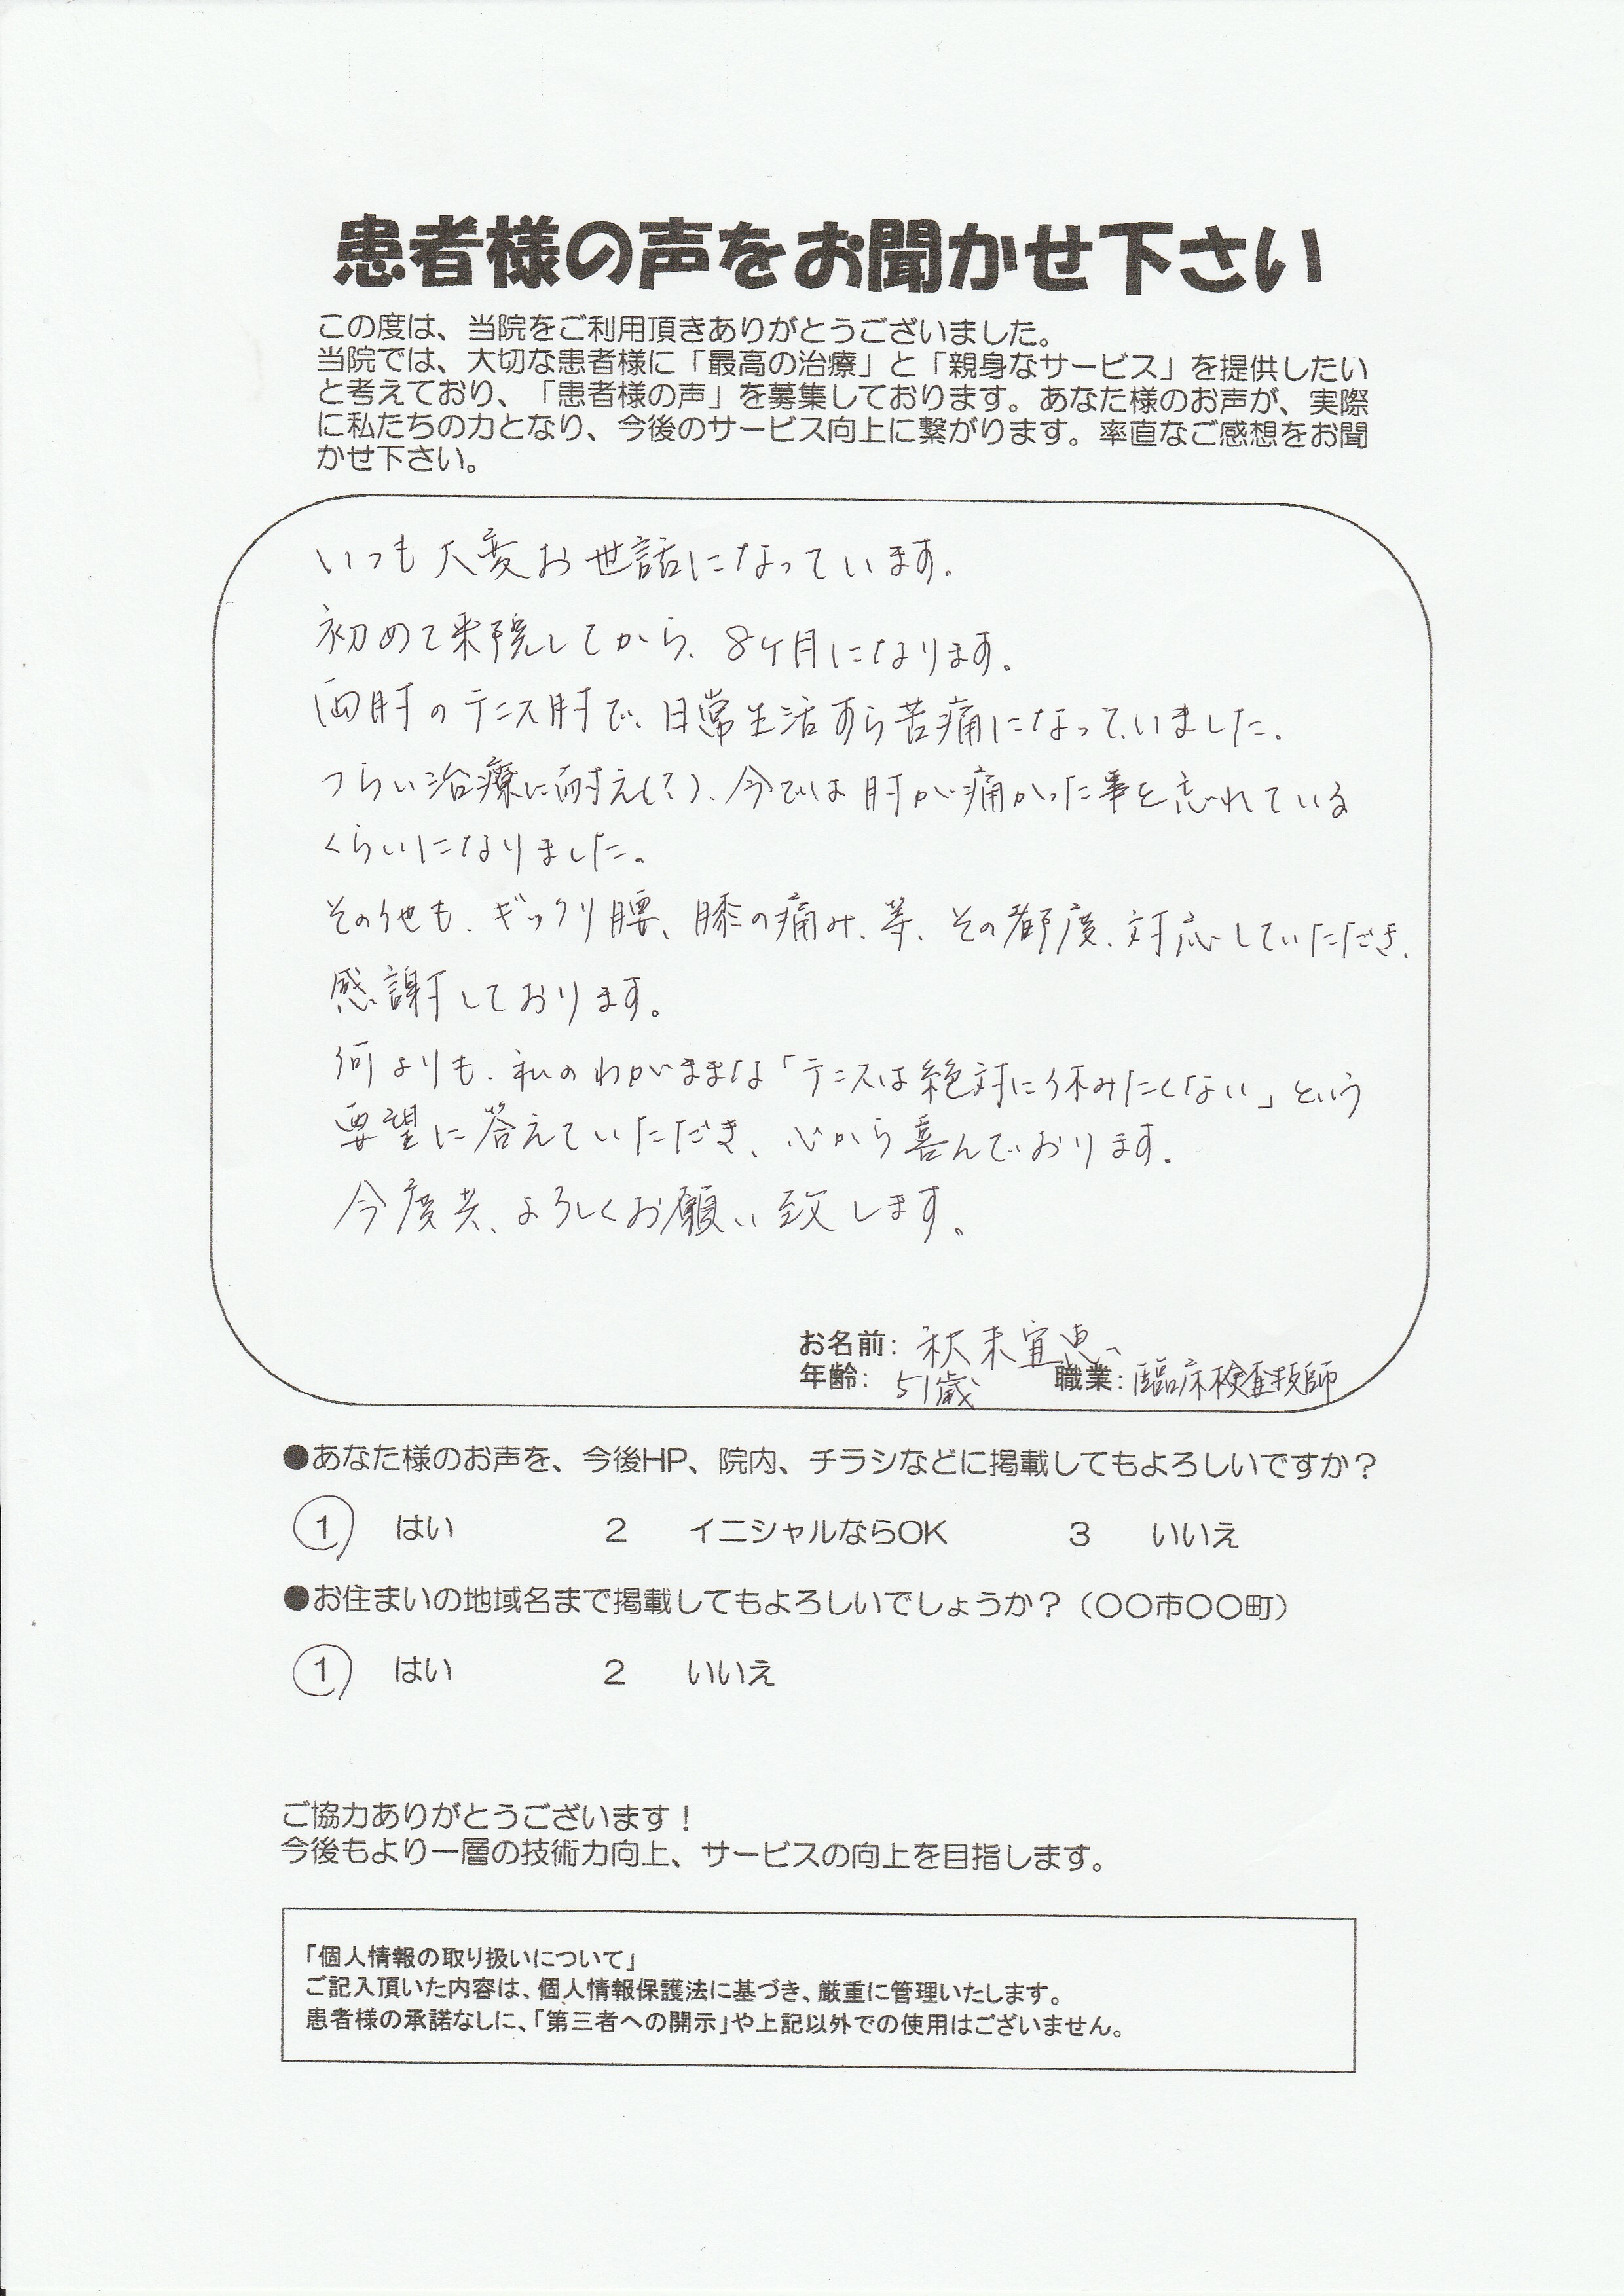 患者様の声をお聞かせ下さい
この度は、当院をご利用頂きありがとうございました。
当院では、大切な患者様に「最高の治療」と「親身なサービス」を提供したい
と考えており、「患者様の声」を募集しております。あなた様のお声が、実際
に私たちの力となり、今後のサービス向上に繋がります。率直なご感想をお聞
かせ下さい。
いつも大変お世話になっています。
初めて来院してから、8ヶ月になります。
両肘のテニス肘で、日常生活すら苦痛になっていました。
つらい治療に耐え(?)、今では肘が痛かった事を忘れている
くらいになりました。
その他も、ギックリ腰、膝の痛み、等、その都度、対応していただき、
感謝しております。
何よりも、私のわがままな「テニスは絶対に休みたくない」という
要望に答えていただき、心から喜んでおります。
今度共、よろしくお願い致します。
お名前: 秋末宜恵
年齢: 51歳 職業: 臨床検査技師
●あなた様のお声を、今後HP、院内、チラシなどに掲載してもよろしいですか？
1 はい 2 イニシャルならOK 3 いいえ
●お住まいの地域名まで掲載してもよろしいでしょうか？（〇〇市〇〇町）
1 はい 2 いいえ
ご協力ありがとうございます！
今後もより一層の技術力向上、サービスの向上を目指します。
「個人情報の取り扱いについて」
ご記入頂いた内容は、個人情報保護法に基づき、厳重に管理いたします。
患者様の承諾なしに、「第三者への開示」や上記以外での使用はございません。